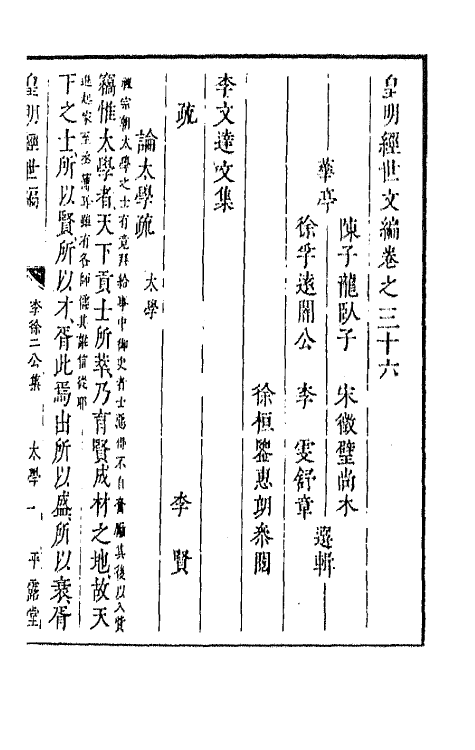 皇明經世文編卷之三十六
華亭
陳子龍臥子 宋徵璧尚木
徐孚遠闇公 李 雯舒章 選輯
徐桓鑒惠朗參閱
李文達文集
疏 李 賢
論太學疏 太學
祖宗朝太學之士有竟拜給事中御史者士惡得不自奮勵其後以入貲
進起家至丞簿耳雖有名師儒其誰信從耶
竊惟太學者天下貢士所萃乃育賢成材之地故天
下之士所以賢所以才胥此焉出所以盛所以衰胥
皇明經世編 李徐二公集 太學 一 平露堂